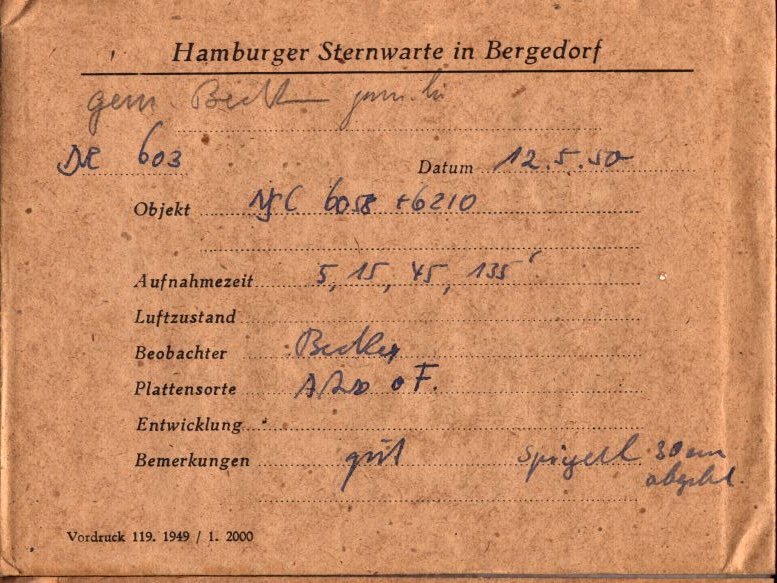 Hamburger Sternwarte in Bergedorf
gem. Becker
603 Datum 12.5.50
Objekt NGC 6058 + 6210
Aufnahmezeit 5, 15, 45, 135'
Luftzustand
Beobachter Becker
Plattensorte oF.
Entwicklung
Bemerkungen gut Spiegel 30 cm
abgebl.
Vordruck 119. 1949 / 1. 2000